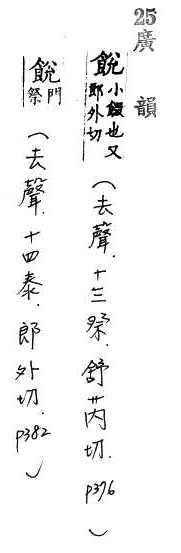 25廣韻
餟小餟也又郎外切（去聲．十三祭．舒芮切．p376）
餟門祭（去聲．十四泰．郎外切．p382）